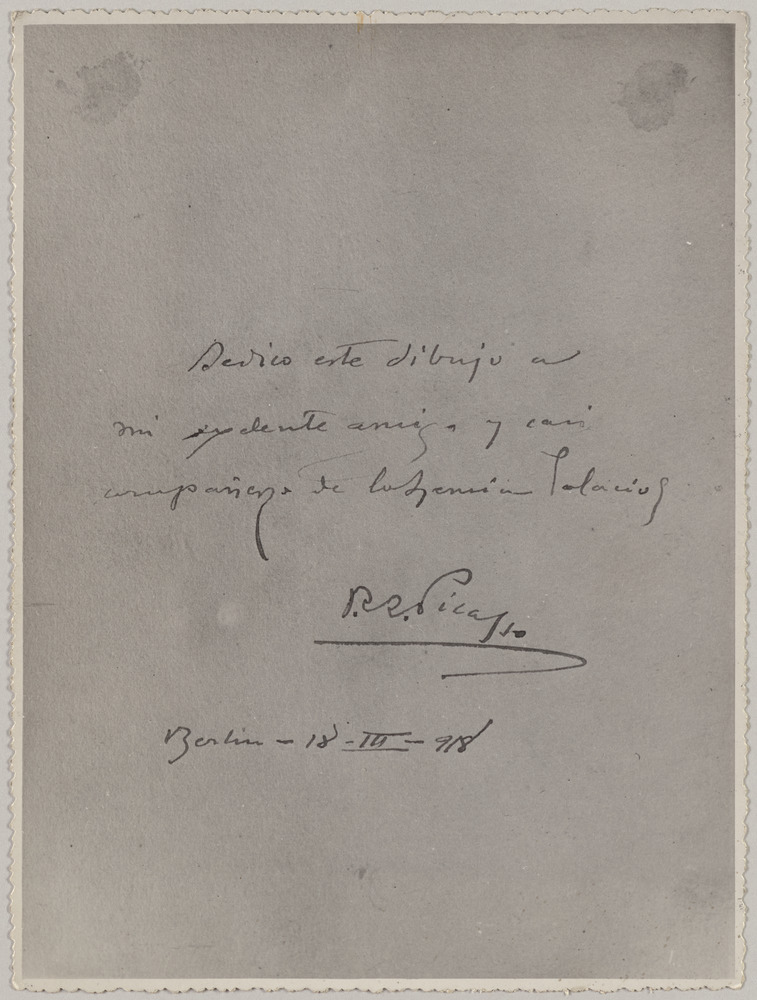 Dedico este dibujo a
mi exelente amigo y casi
compañero de bohemia Palacios
P. R. Picasso
Berlin - 18 - III - 918